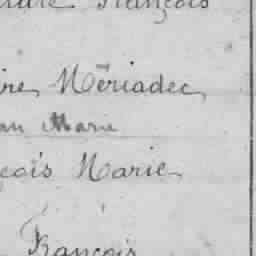 François
Mériadec
an Marie
çois Marie
François